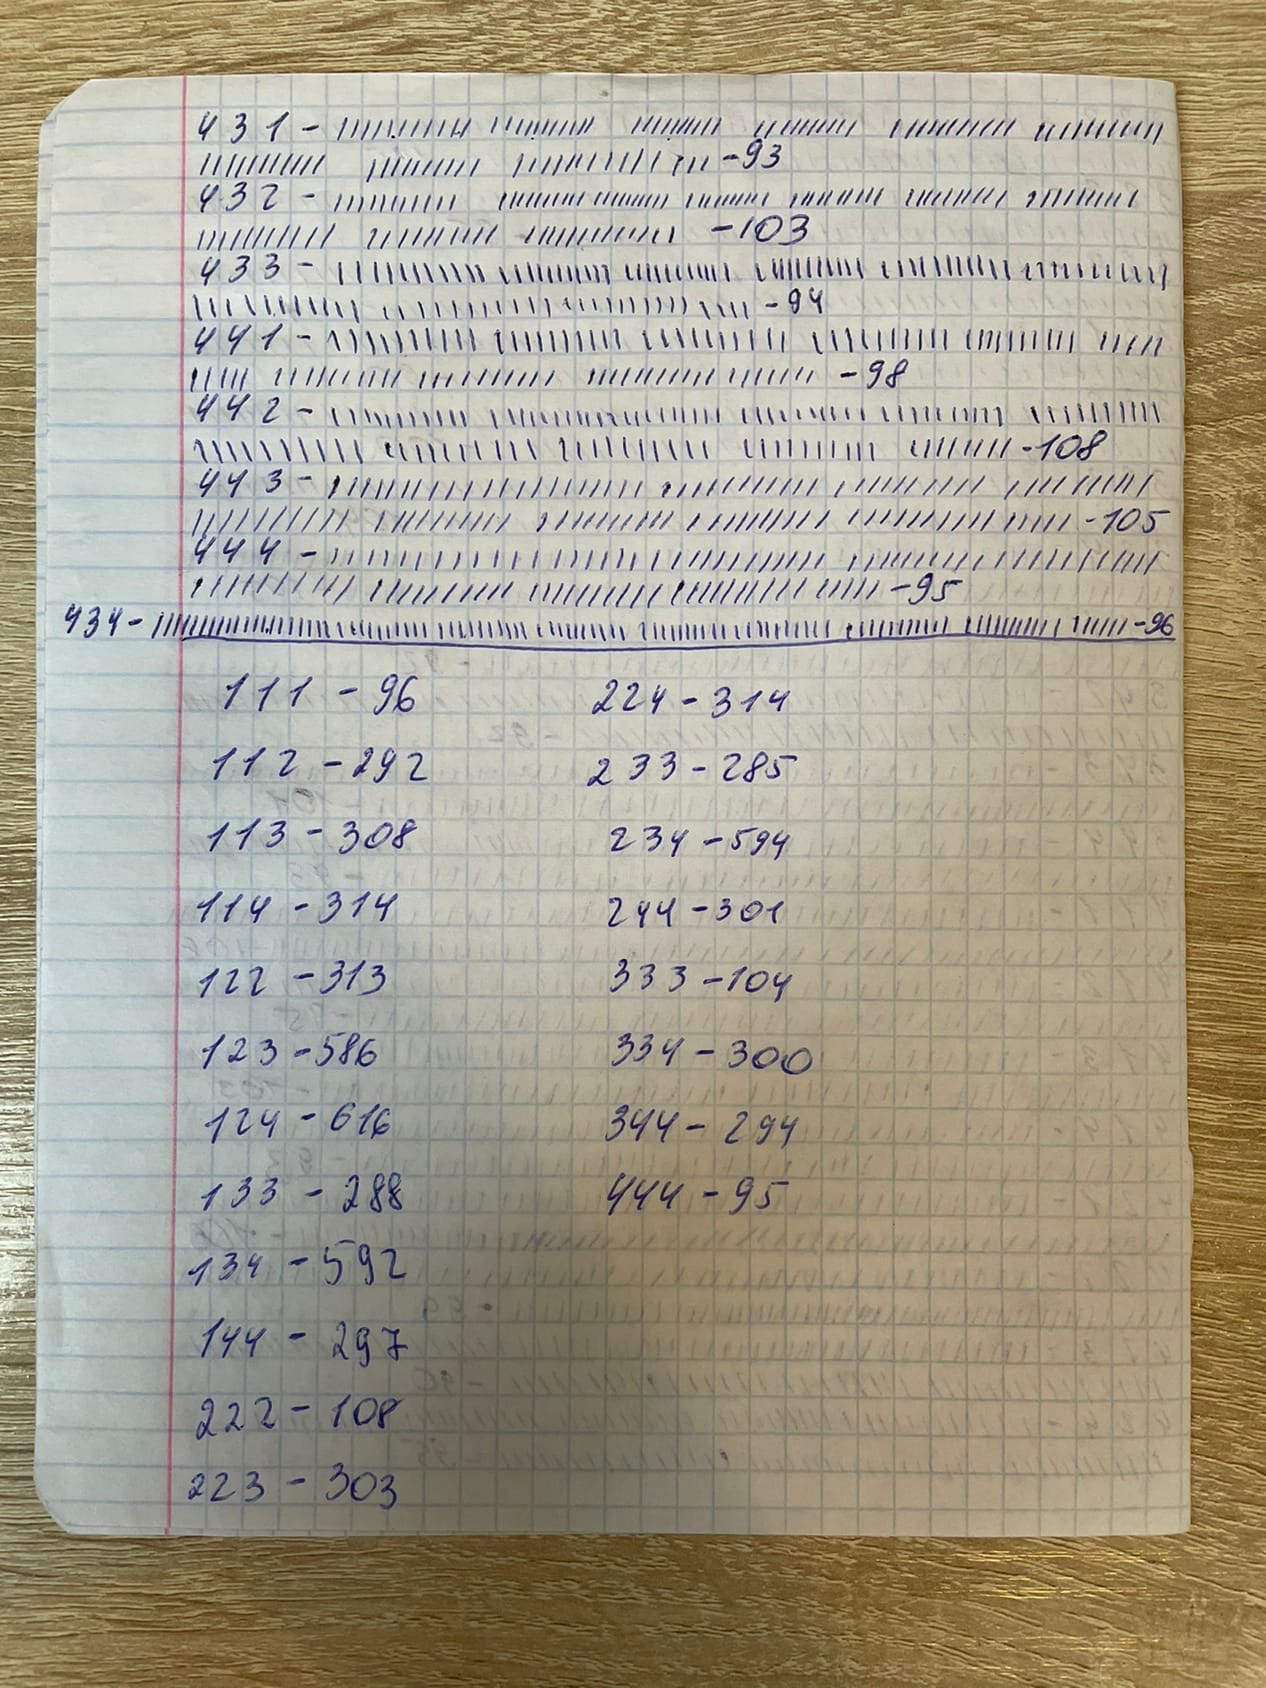 431 - - 93
432 - - 103
433 - - 94
441 - - 98
442 - - 108
443 - - 105
444 - - 95
434 - - 96
111 - 96
112 - 292
113 - 308
114 - 314
122 - 313
123 - 586
124 - 616
133 - 288
134 - 592
144 - 297
222 - 108
223 - 303
224 - 314
233 - 285
234 - 594
244 - 301
333 - 104
334 - 300
344 - 294
444 - 95